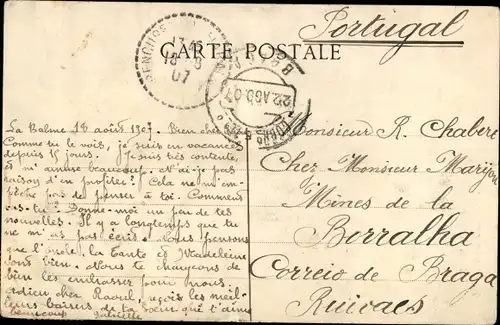 Portugal
CARTE POSTALE
BRAGA
22 AGO 07
18 - 8
07
La Balme 18 août 1907. Bien cher
Comme tu le vois, je suis en vacances
depuis 15 jours. Je suis très contente,
et m'amuse beaucoup. N'ai-je pas
raison d'en profiter? Cela ne m'em-
pêche pas de penser à toi. Comment
vas-tu? Donne-moi un peu de tes
nouvelles. Il y a longtemps que tu
ne m'as pas écrit. Nous pensons
que l'oncle, la tante et Madeleine
sont bien. Nous te chargeons de
bien les embrasser pour nous.
Adieu cher Raoul, reçois les meil-
leurs baisers de ta sœur qui t'aime
beaucoup
Monsieur R. Chabert
Chez Monsieur
Mines de la
Borralha
Correio de Braga
Ruivaes